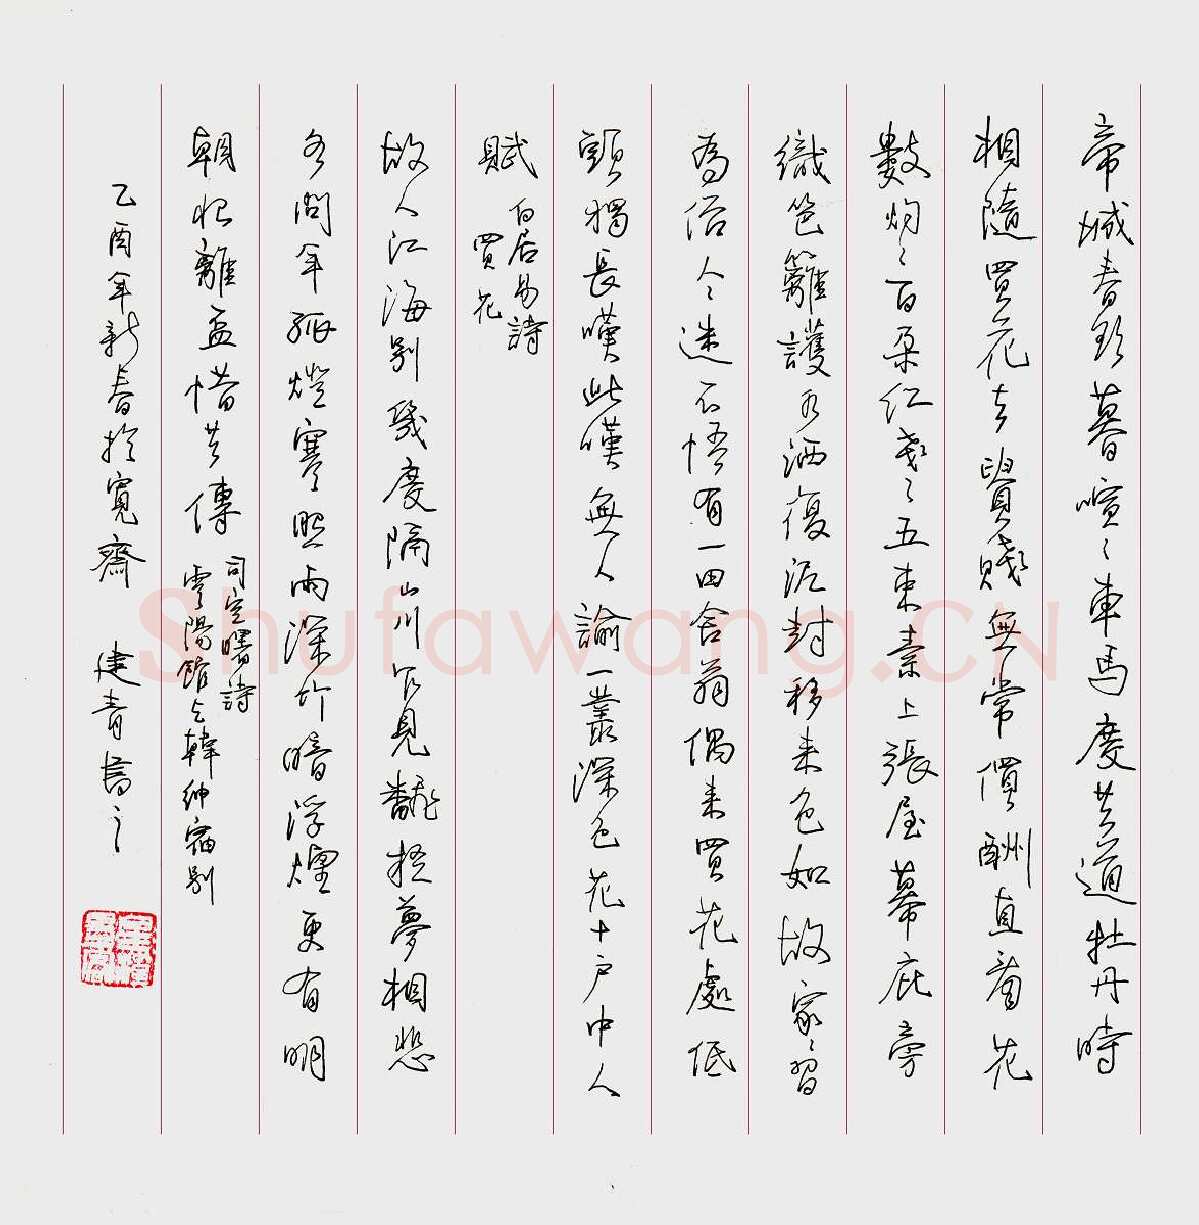 帝城春欲暮喧〻車馬度共道牡丹時
相隨買花去貴賤無常價酬直看花
數灼〻百朶紅戔〻五束素上張幄幕庇旁
織笆籬護水洒復泥封移来色如故家〻習
為俗人〻迷不悟有一田舍翁偶来買花處低
頭獨長嘆此嘆無人諭一叢深色花十戶中人
賦
白居易詩
買花
故人江海别幾度隔山川乍見翻疑夢相悲
各問年孤燈寒照雨深竹暗浮煙更有明
朝恨離盃惜共傳
司空曙詩
雲陽館与韓紳宿别
乙酉年新春於寬齋 建青書之
Shufawang.CN